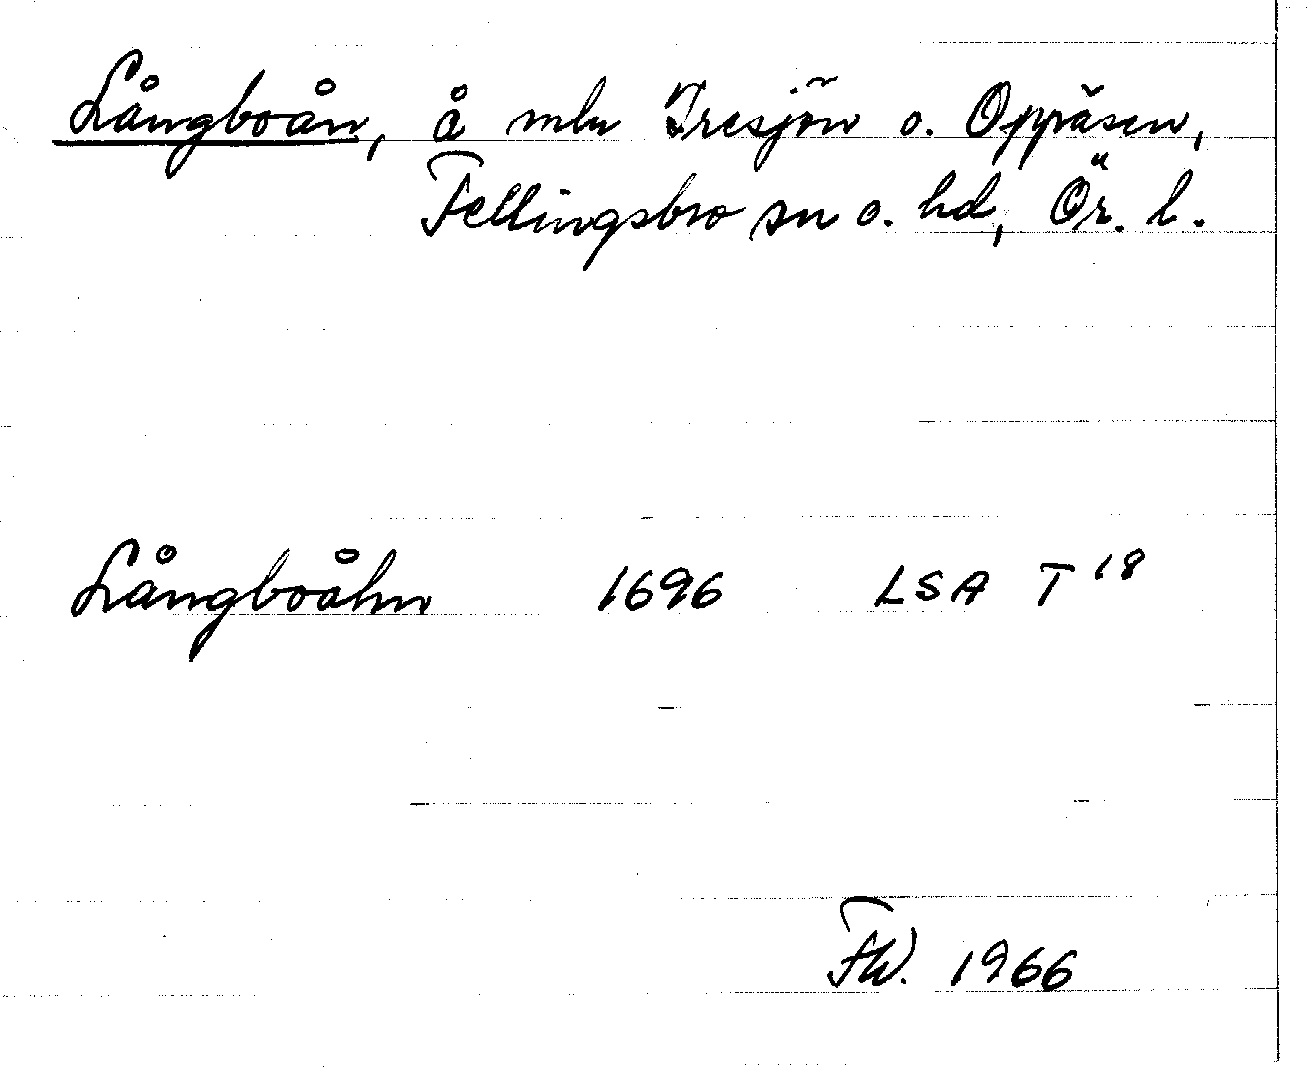 Långboån, å mln Tresjön o. Oppäsen,
Fellingsbro sn o. hd, Ör. l.
Långboåhn 1696 LSA T 18
FW. 1966